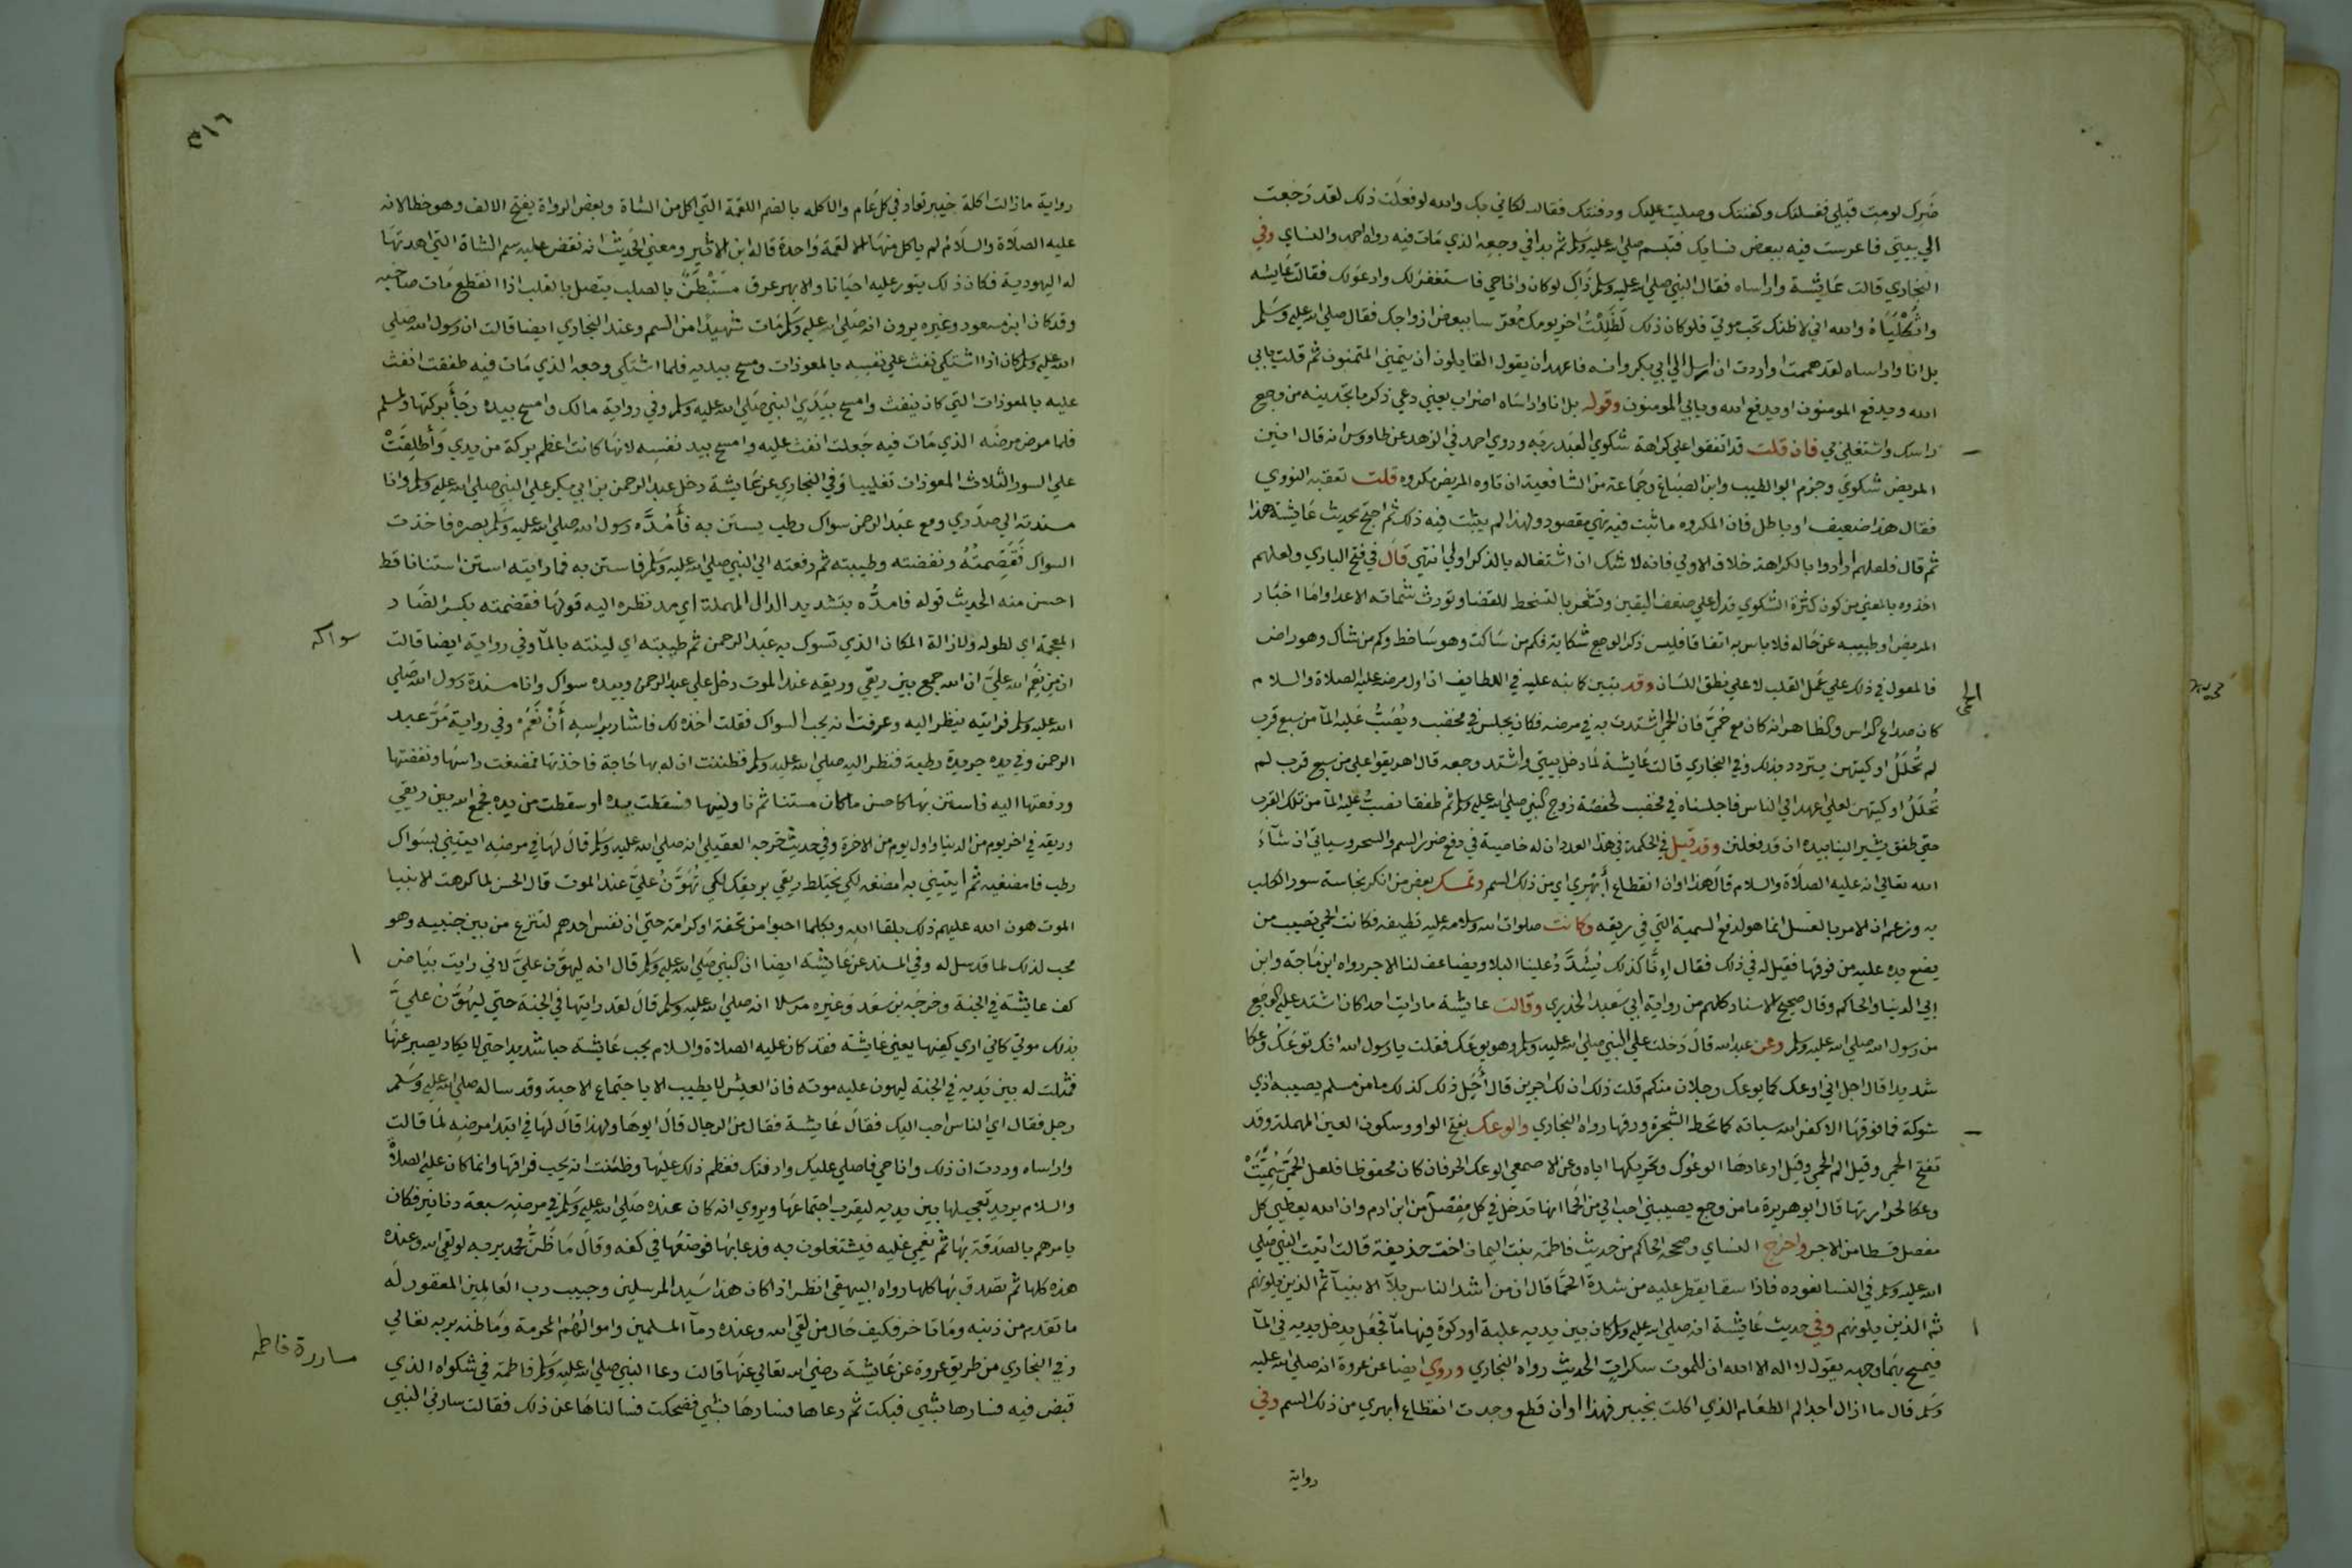 ضرك لومت قبلي فغسلتك وكفنتك وصليت عليك ودفنتك فقالت لكاني بك والله لو فعلت ذلك لقد رجعت
الي بيتي فاعرست فيه ببعض نسايك فتبسم صلي الله عليه وسلم ثم بدا في وجعه الذي مات فيه رواه احمد والنساي وفي
البخاري قالت عايشة واراساه فقال النبي صلي الله عليه وسلم ذاك لو كان وانا حي فاستغفر لك وادعو لك فقالت عايشه
واثكلياه والله اني لاظنك تحب موتي فلو كان ذلك لظللت اخر يومك معرسا ببعض ازواجك فقال صلي الله عليه وسلم
بل انا واراساه لقد هممت او اردت ان ارسل الي ابي بكر وابنه فاعهد ان يقول القايلون او يتمني المتمنون ثم قلت يابي
الله ويدفع المومنون او يدفع الله ويابي المومنون وقوله بل انا واراساه اضراب يعني دعي ذكر ما تجدينه من وجع
راسك واشتغلي بي فان قلت قد اتفقوا علي كراهة شكوي العبد ربه وروي احمد في الزهد عن طاووس انه قال انين
المريض شكوي وجزم ابو الطيب وابن الصباغ وجماعة من الشافعية ان تاوه المريض مكروه قلت تعقبه النووي
فقال هذا ضعيف او باطل فان المكروه ما ثبت فيه نهي مقصود وهذا لم يثبت فيه ذلك ثم احتج بحديث عايشة هذا
ثم قال فلعلهم ارادوا بالكراهة خلاف الاولي فانه لا شك ان اشتغاله بالذكر اولي انتهي قال في فتح الباري ولعلهم
اخذوه بالمعني من كون كثرة الشكوي تدل علي ضعف اليقين وتشعر بالتسخط للقضا وتورث شماتة الاعدا واما اخبار
المريض او طبيبه عن حاله فلا باس به اتفاقا فليس ذكر الوجع شكاية فكم من ساكت وهو ساخط وكم من شاك وهو راض
فالمعول في ذلك علي عمل القلب لا علي نطق اللسان وقد تبين كما نبه عليه في اللطايف ان اول مرضه عليه الصلاة والسلام
كان صداع الراس والظاهر انه كان مع حمي فان الحمي اشتدت به في مرضه فكان يجلس في مخضب ويصب عليه الما من سبع قرب
لم تحلل اوكيتهن يتبرد بذلك وفي البخاري قالت عايشة لما دخل بيتي واشتد وجعه قال اهريقوا علي من سبع قرب لم
تحلل اوكيتهن لعلي اعهد الي الناس فاجلسناه في مخضب لحفصة زوج النبي صلي الله عليه وسلم ثم طفقنا نصب عليه الما من تلك القرب
حتي طفق يشير الينا بيده ان قد فعلتن وقد قيل في الحكمة في هذا العدد ان له خاصية في دفع ضرر السم والسحر وسياتي ان شاء
الله تعالي انه عليه الصلاة والسلام قال هذا اوان انقطاع ابهري اي من ذلك السم وتمسك بعض من انكر نجاسة سور الكلب
به وزعم ان الامر بالغسل انما هو لدفع السمية التي في ريقه وكانت صلوات الله وسلامه عليه قطيفه فكانت الحمي تصيب من
يضع يده عليه من فوقها فقيل له في ذلك فقال انا كذلك يشدد علينا البلا ويضاعف لنا الاجر رواه ابن ماجة وابن
ابي الدنيا والحاكم وقال صحيح الاسناد كلهم من رواية ابي سعيد الخدري وقالت عايشة ما رايت احدا كان اشد عليه الوجع
من رسول الله صلي الله عليه وسلم وعن عبد الله قال دخلت علي النبي صلي الله عليه وسلم وهو يوعك فقلت يا رسول الله انك توعك وعكا
شديدا قال اجل اني اوعك كما يوعك رجلان منكم قلت ذلك ان لك اجرين قال اجل ذلك كذلك ما من مسلم يصيبه اذي
شوكة فما فوقها الا كفر الله سياته كما تحط الشجرة ورقها رواه البخاري والوعك بفتح الواو وسكون العين المهملة وقد
تفتح الحمي وقيل الم الحمي وقيل ارعادها الموعوك وتحريكها اياه وعن الاصمعي الوعك الحر فان كان محفوظا فلعل الحمي سميت
وعكا لحرارتها قال ابو هريرة ما من وجع يصيبني احب الي من الحما انها تدخل في كل مفصل من ابن ادم وان الله يعطي كل
مفصل قسطا من الاجر واخرج النساي وصححه الحاكم من حديث فاطمة بنت اليمان اخت حذيفة قالت اتيت النبي صلي
الله عليه وسلم في النسا نعوده فاذا سقا يقطر عليه من شدة الحما قال ان من اشد الناس بلآ الانبيآ ثم الذين يلونهم
ثم الذين يلونهم وفي حديث عايشة انه صلي الله عليه وسلم كان بين يديه علبة او ركوة فيها ما فجعل يدخل يديه في الما
فيمسح بهما وجهه يقول لا اله الا الله ان للموت سكرات الحديث رواه البخاري وروي ايضا عن عروة انه صلي الله عليه
وسلم قال ما ازال اجد الم الطعام الذي اكلت بخيبر فهذا اوان قطع وجدت انقطاع ابهري من ذلك السم وفي
رواية
الحمي
٥١٦
رواية ما زالت اكلة خيبر تعاد في كل عام والاكله بالضم اللقمة التي اكل من الشاة وبعض الرواة يفتح الالف وهو خطا لانه
عليه الصلاة والسلام لم ياكل منها الا لقمة واحدة قاله ابن الاثير ومعني الحديث انه نقض عليه سم الشاة التي اهدتها
له اليهودية فكان ذلك يثور عليه احيانا والابهر عرق مستبطن بالصلب يتصل بالقلب اذا انقطع مات صاحبه
وقد كان ابن مسعود وغيره يرون انه صلي الله عليه وسلم مات شهيدا من السم وعند البخاري ايضا قالت ان رسول الله صلي
الله عليه وسلم كان اذا اشتكي نفث علي نفسه بالمعوذات ومسح بيديه فلما اشتكي وجعه الذي مات فيه طفقت انفث
عليه بالمعوذات التي كان ينفث وامسح بيدي النبي صلي الله عليه وسلم وفي رواية مالك وامسح بيده رجأ بركتها ولمسلم
فلما مرض مرضه الذي مات فيه جعلت انفث عليه وامسح بيد نفسه لانها كانت اعظم بركة من يدي وأطلقت
علي السور الثلاث المعوذات تغليبا وفي البخاري عن عايشة دخل عبد الرحمن بن ابي بكر علي النبي صلي الله عليه وسلم وانا
مسندته الي صدري ومع عبد الرحمن سواك رطب يستن به فأمده رسول الله صلي الله عليه وسلم بصره فاخذت
السواك فقضمته ونفضته وطيبته ثم دفعته الي النبي صلي الله عليه وسلم فاستن به فما رايته استن استنانا قط
احسن منه الحديث قوله فامده بتشديد الدال المهملة اي مد نظره اليه قولها فقضمته بكسر الضاد
المعجمة اي لطوله ولازالة المكان الذي تسوك به عبد الرحمن ثم طيبته اي لينته بالمآ وفي رواية ايضا قالت
ان من نعم الله علي ان الله جمع بين ريقي وريقه عند الموت دخل علي عبد الرحمن وبيده سواك وانا مسندة رسول الله صلي
الله عليه وسلم فرايته ينظر اليه وعرفت انه يحب السواك فقلت اخذه لك فاشار براسه أن نعم وفي رواية مر عبد
الرحمن وفي يده جريدة رطبة فنظر اليه صلي الله عليه وسلم فظننت ان له بها حاجة فاخذتها فمضغت راسها ونفضتها
ودفعتها اليه فاستن بها كاحسن ما كان مستنا ثم ناولنيها فسقطت يده او سقطت من يده فجمع الله بين ريقي
وريقه في اخر يوم من الدنيا واول يوم من الاخرة وفي حديث خرجه العقيلي انه صلي الله عليه وسلم قال لها في مرضه ايتيني بسواك
رطب فامضغيه ثم ايتيني به امضغه لكي يختلط ريقي بريقك لكي تهون علي عند الموت قال الحسن لما كرهت الانبيا
الموت هون الله عليهم ذلك بلقا الله وبكلما احبوا من تحفة او كرامة حتي ان نفس احدهم لتنزع من بين جنبيه وهو
محب لذلك لما قد مثل له وفي المسند عن عايشة ايضا ان النبي صلي الله عليه وسلم قال انه ليهون علي لاني رايت بياض
كف عايشة في الجنة وخرجه بن سعد وغيره مرسلا انه صلي الله عليه وسلم قال لقد رايتها في الجنة حتي ليهون علي
بذلك موتي كاني اري كفيها يعني عايشة فقد كان عليه الصلاة والسلام يحب عايشة حبا شديدا حتي لا يكاد يصبر عنها
فمثلت له بين يديه في الجنة ليهون عليه موته فان العيش لا يطيب الا باجتماع الاحبة وقد ساله صلي الله عليه وسلم
رجل فقال اي الناس احب اليك فقال عايشة فقال من الرجال قال ابوها ولهذا قال لها في ابتدا مرضه لما قالت
واراساه وددت ان ذلك وانا حي فاصلي عليك وادفنك فعظم ذلك عليها وظننت انه يحب فراقها وانما كان عليه الصلاة
والسلام يريد تعجيلها بين يديه ليقرب اجتماعها ويروي انه كان عنده صلي الله عليه وسلم في مرضه سبعة دنانير فكان
يامرهم بالصدقة بها ثم يغمي عليه فيشتغلون به فدعا بها فوضعها في كفه وقال ما ظن محمد بربه لو لقي الله وعنده
هذه كلها ثم تصدق بها كلها رواه البيهقي انظر اذا كان هذا سيد المرسلين وحبيب رب العالمين المغفور له
ما تقدم من ذنبه وما تاخر فكيف حال من لقي الله وعنده دمآ المسلمين واموالهم المحرمة وما ظنه بربه تعالي
وفي البخاري من طريق عروة عن عايشة رضي الله تعالي عنها قالت دعا النبي صلي الله عليه وسلم فاطمة في شكواه الذي
قبض فيه فسارها بشي فبكت ثم دعاها فسارها بشي فضحكت فسالناها عن ذلك فقالت سارني النبي
سواكه
مساررة فاطمه